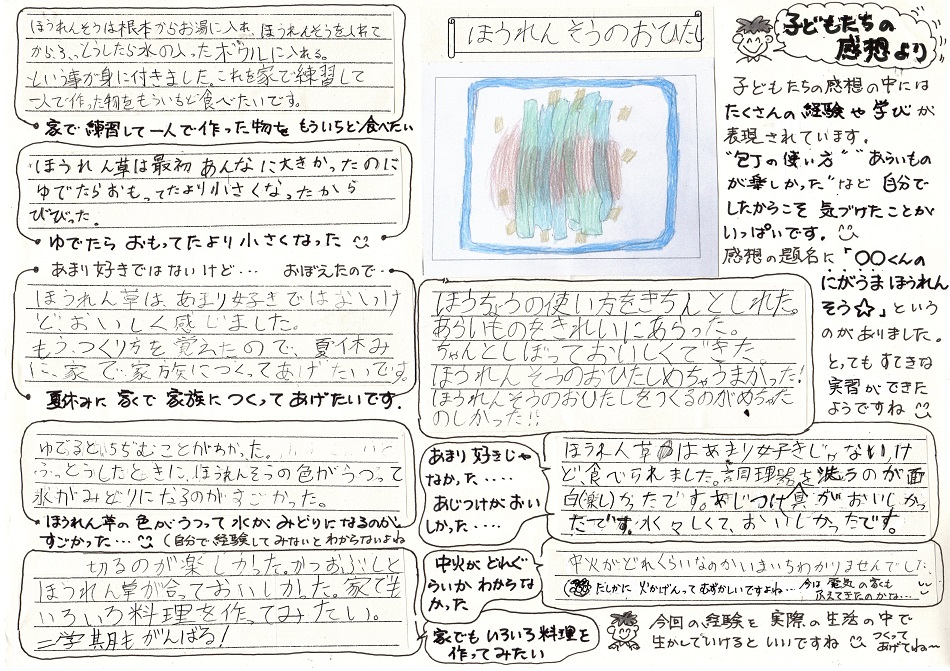 ほうれんそうのおひたし
子どもたちの
感想より
子どもたちの感想の中には
たくさんの経験や学びが
表現されています。
"包丁の使い方" "あらいもの
が楽しかった"など 自分で
したからこそ 気づけたことが
いっぱいです。
感想の題名に「〇〇くんの
にがうまほうれん
そう☆」という
のがありました。
とってもすてきな
実習ができた
ようですね
ほうれんそうは根本からお湯に入れ、ほうれんそうを入れて
から、ふっとうしたら水の入ったボウルに入れる。
という事が身に付きました。これを家で練習して
一人で作った物をもういちど食べたいです。
・家で練習して一人で作った物を もういちど食べたい
ほうれん草は最初あんなに大きかったのに
ゆでたらおもってたより小さくなったから
びびった。
・ゆでたら おもってたより小さくなった
・あまり好きではないけど… おぼえたので・
ほうれん草は、あまり好きではないけ
ど、おいしく感じました。
もう、つくり方を覚えたので、夏休み
に、家で家族につくってあげたいです。
・夏休みに 家で 家族につくって あげたいです。
ゆでるとちぢむことがわかった。
ふっとうしたときに、ほうれんそうの色がうつって
水がみどりになるのがすごかった。
・ほうれん草の色がうつって水がみどりになるのが
すごかった… (自分で経験してみないとわからないよね
切るのが楽しかった。かつおぶしと
ほうれん草が合っておいしかった。家でも
いろいろ料理を作ってみたい。
二学期もがんばる!
ほうちょうの使い方をきちんとしれた。
あらいものをきれいにあらった。
ちゃんとしぼっておいしくできた。
ほうれんそうのおひたしめちゃうまかった!
ほうれんそうのおひたしをつくるのがめちゃた
のしかった!!
あまり好きじゃ
なかった....
あじつけがおい
しかった....
ほうれん草はあまり好きじゃないけ
ど、食べられました。調理器を洗うのが面
白(楽し)かったです。あじつけ具がおいしかっ
たです。水々しくて、おいしかったです。
中火が どれぐ
らいか わからな
かった
中火がどれくらいなのかいまいちわかりませんでした。
たしかに 火かげんって むずかしいですよね… 今は電気の家も
ふえてきたのかな…
家でもいろいろ料理を
作ってみたい
今回の経験を 実際の生活の中で
生かしていけると いいですね つくって
あげてね〜